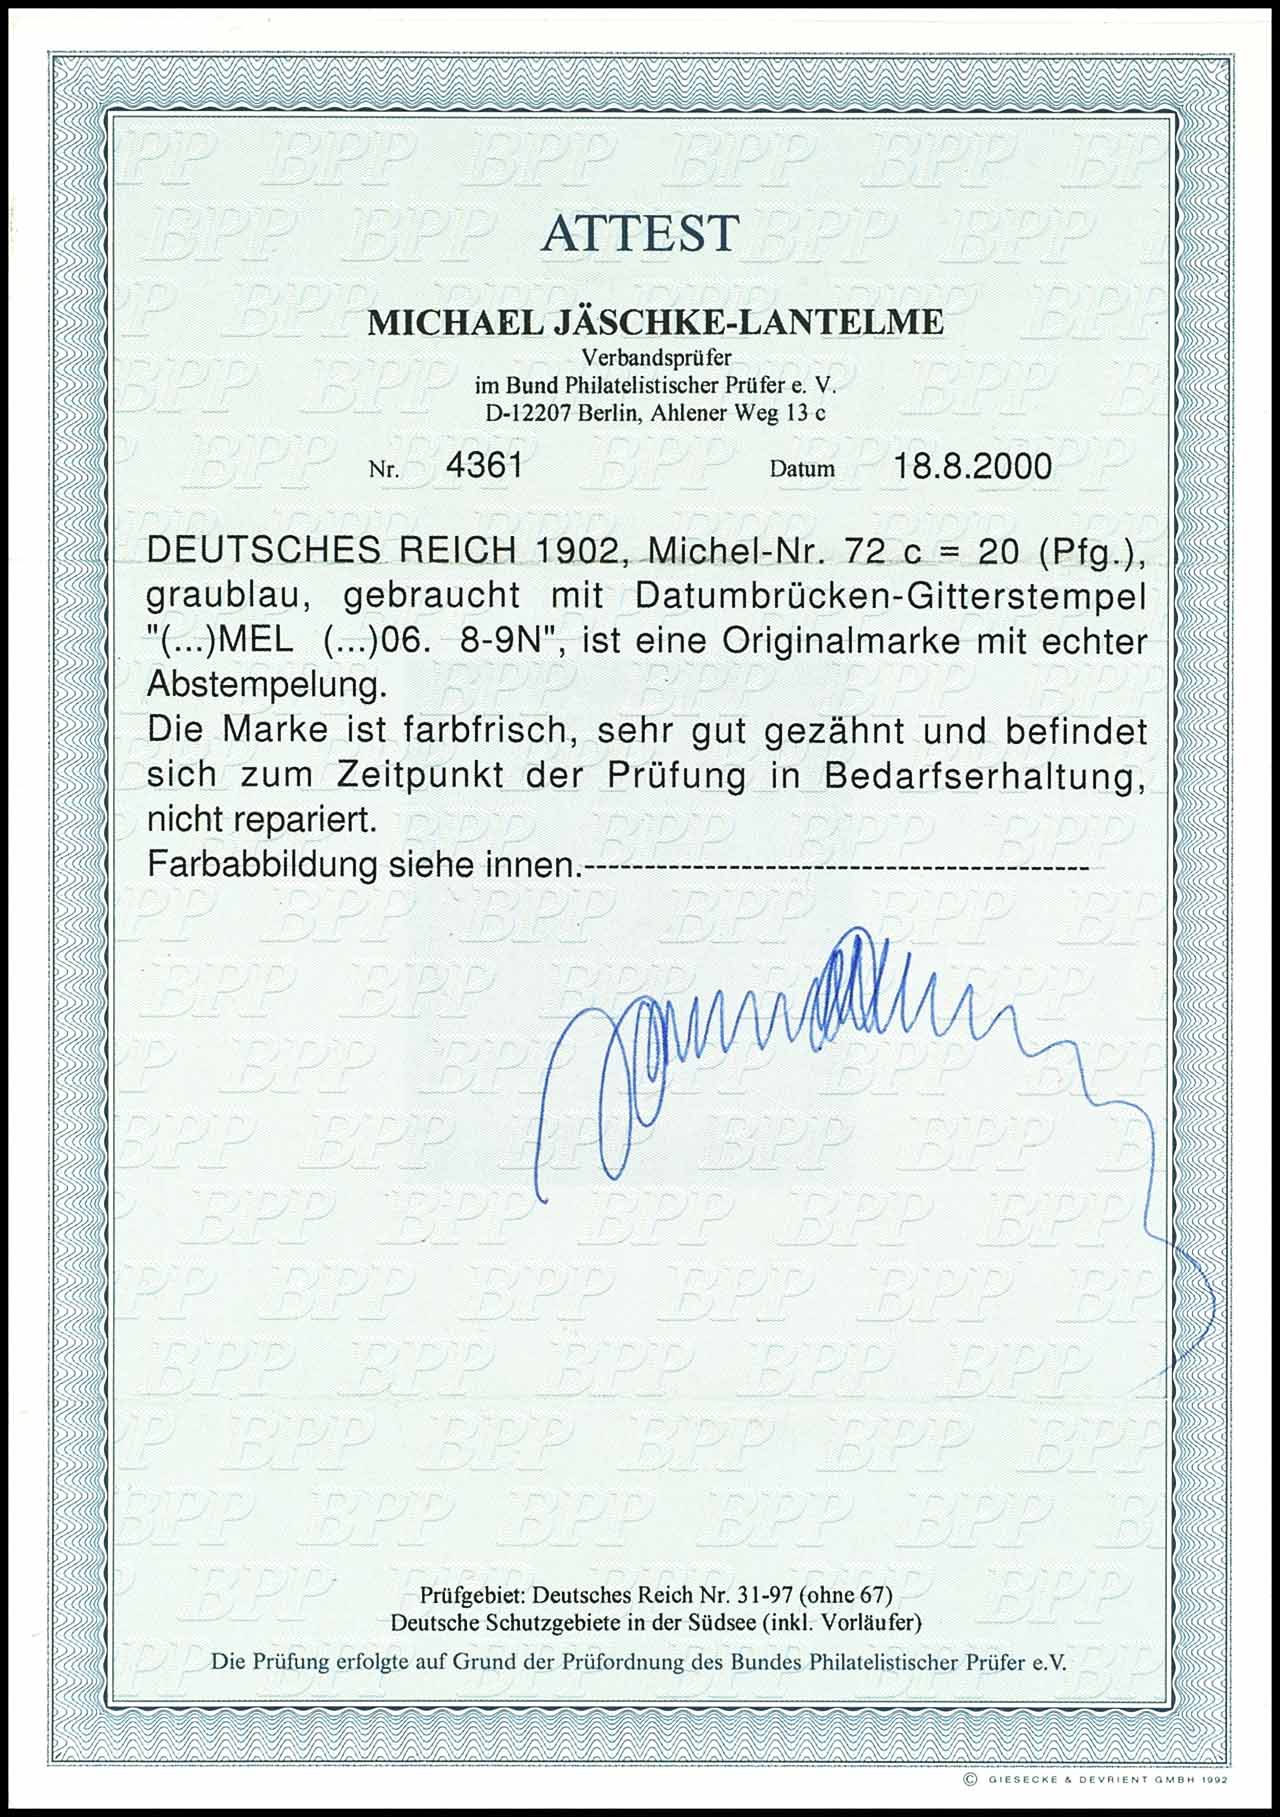 ATTEST
MICHAEL JÄSCHKE-LANTELME
Verbandsprüfer
im Bund Philatelistischer Prüfer e. V.
D-12207 Berlin, Ahlener Weg 13 c
Nr. 4361 Datum 18.8.2000
DEUTSCHES REICH 1902, Michel-Nr. 72 c = 20 (Pfg.),
graublau, gebraucht mit Datumbrücken-Gitterstempel
"(...)MEL (...)06. 8-9N", ist eine Originalmarke mit echter
Abstempelung.
Die Marke ist farbfrisch, sehr gut gezähnt und befindet
sich zum Zeitpunkt der Prüfung in Bedarfserhaltung,
nicht repariert.
Farbabbildung siehe innen.-----------------------------------------
Prüfgebiet: Deutsches Reich Nr. 31-97 (ohne 67)
Deutsche Schutzgebiete in der Südsee (inkl. Vorläufer)
Die Prüfung erfolgte auf Grund der Prüfordnung des Bundes Philatelistischer Prüfer e.V.
© GIESECKE & DEVRIENT GMBH 1992